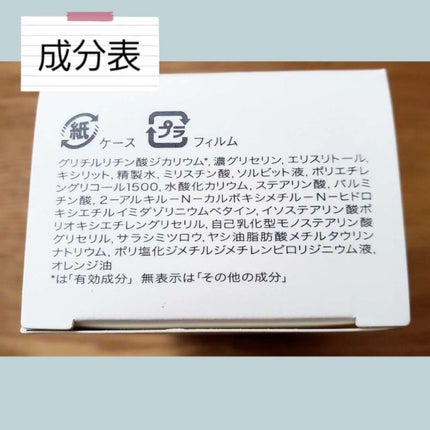 成分表
紙 ケース プラ フィルム
グリチルリチン酸ジカリウム*, 濃グリセリン, エリスリトール,
キシリット, 精製水, ミリスチン酸, ソルビット液, ポリエチレ
ングリコール1500, 水酸化カリウム, ステアリン酸, パルミ
チン酸, 2-アルキル-N-カルボキシメチル-N-ヒドロ
キシエチルイミダゾリニウムベタイン, イソステアリン酸ポ
リオキシエチレングリセリル, 自己乳化型モノステアリン酸
グリセリル, サラシミツロウ, ヤシ油脂肪酸メチルタウリン
ナトリウム, ポリ塩化ジメチルジメチレンピロリジニウム液,
オレンジ油
*は「有効成分」 無表示は「その他の成分」